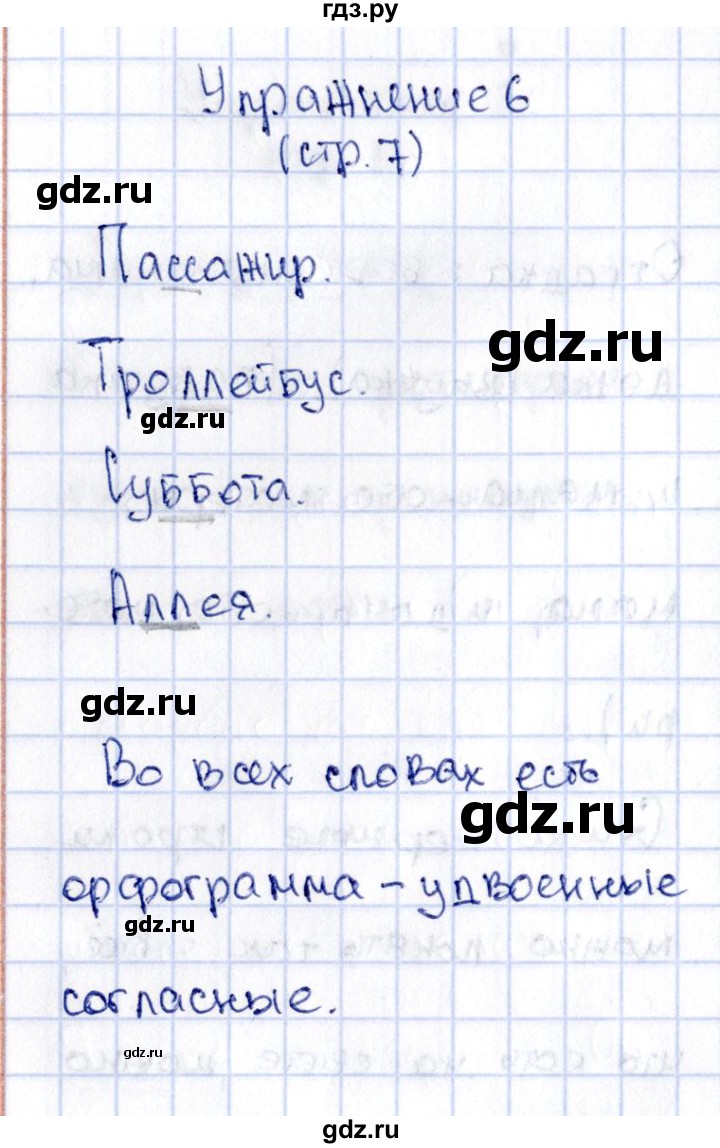 гдз.ру
Упражнение 6
(стр. 7)
gdz.ru
Пассажир.
gdz.ru
Троллейбус.
gdz.ru
Суббота.
Аллея.
gdz.ru
Во всех словах есть
gdz.ru
орфограмма – удвоенные
gdz.ru
согласные.
gdz.ru
gdz.ru